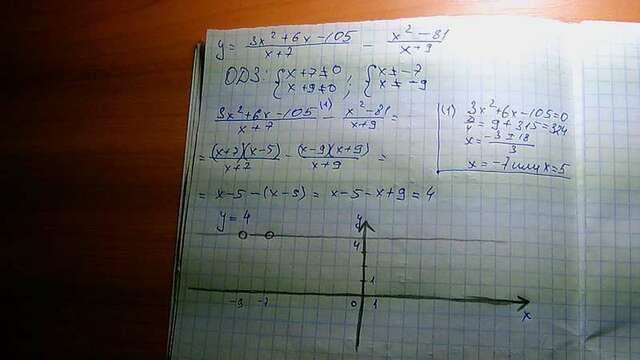 y = (3x² + 6x - 105)/(x + 7) - (x² - 81)/(x + 9)
ОДЗ: { x + 7 ≠ 0 ; { x ≠ -7
{ x + 9 ≠ 0 { x ≠ -9
(3x² + 6x - 105)/(x + 7) (1) - (x² - 81)/(x + 9) =
= (x+7)(x-5)/(x+7) - (x-9)(x+9)/(x+9) =
= x - 5 - (x - 9) = x - 5 - x + 9 = 4
(1) 3x² + 6x - 105 = 0
D/4 = 9 + 315 = 324
x = (-3 ± 18)/3
x = -7 или x = 5
y = 4
y
4
1
-9 -7 0 1
x